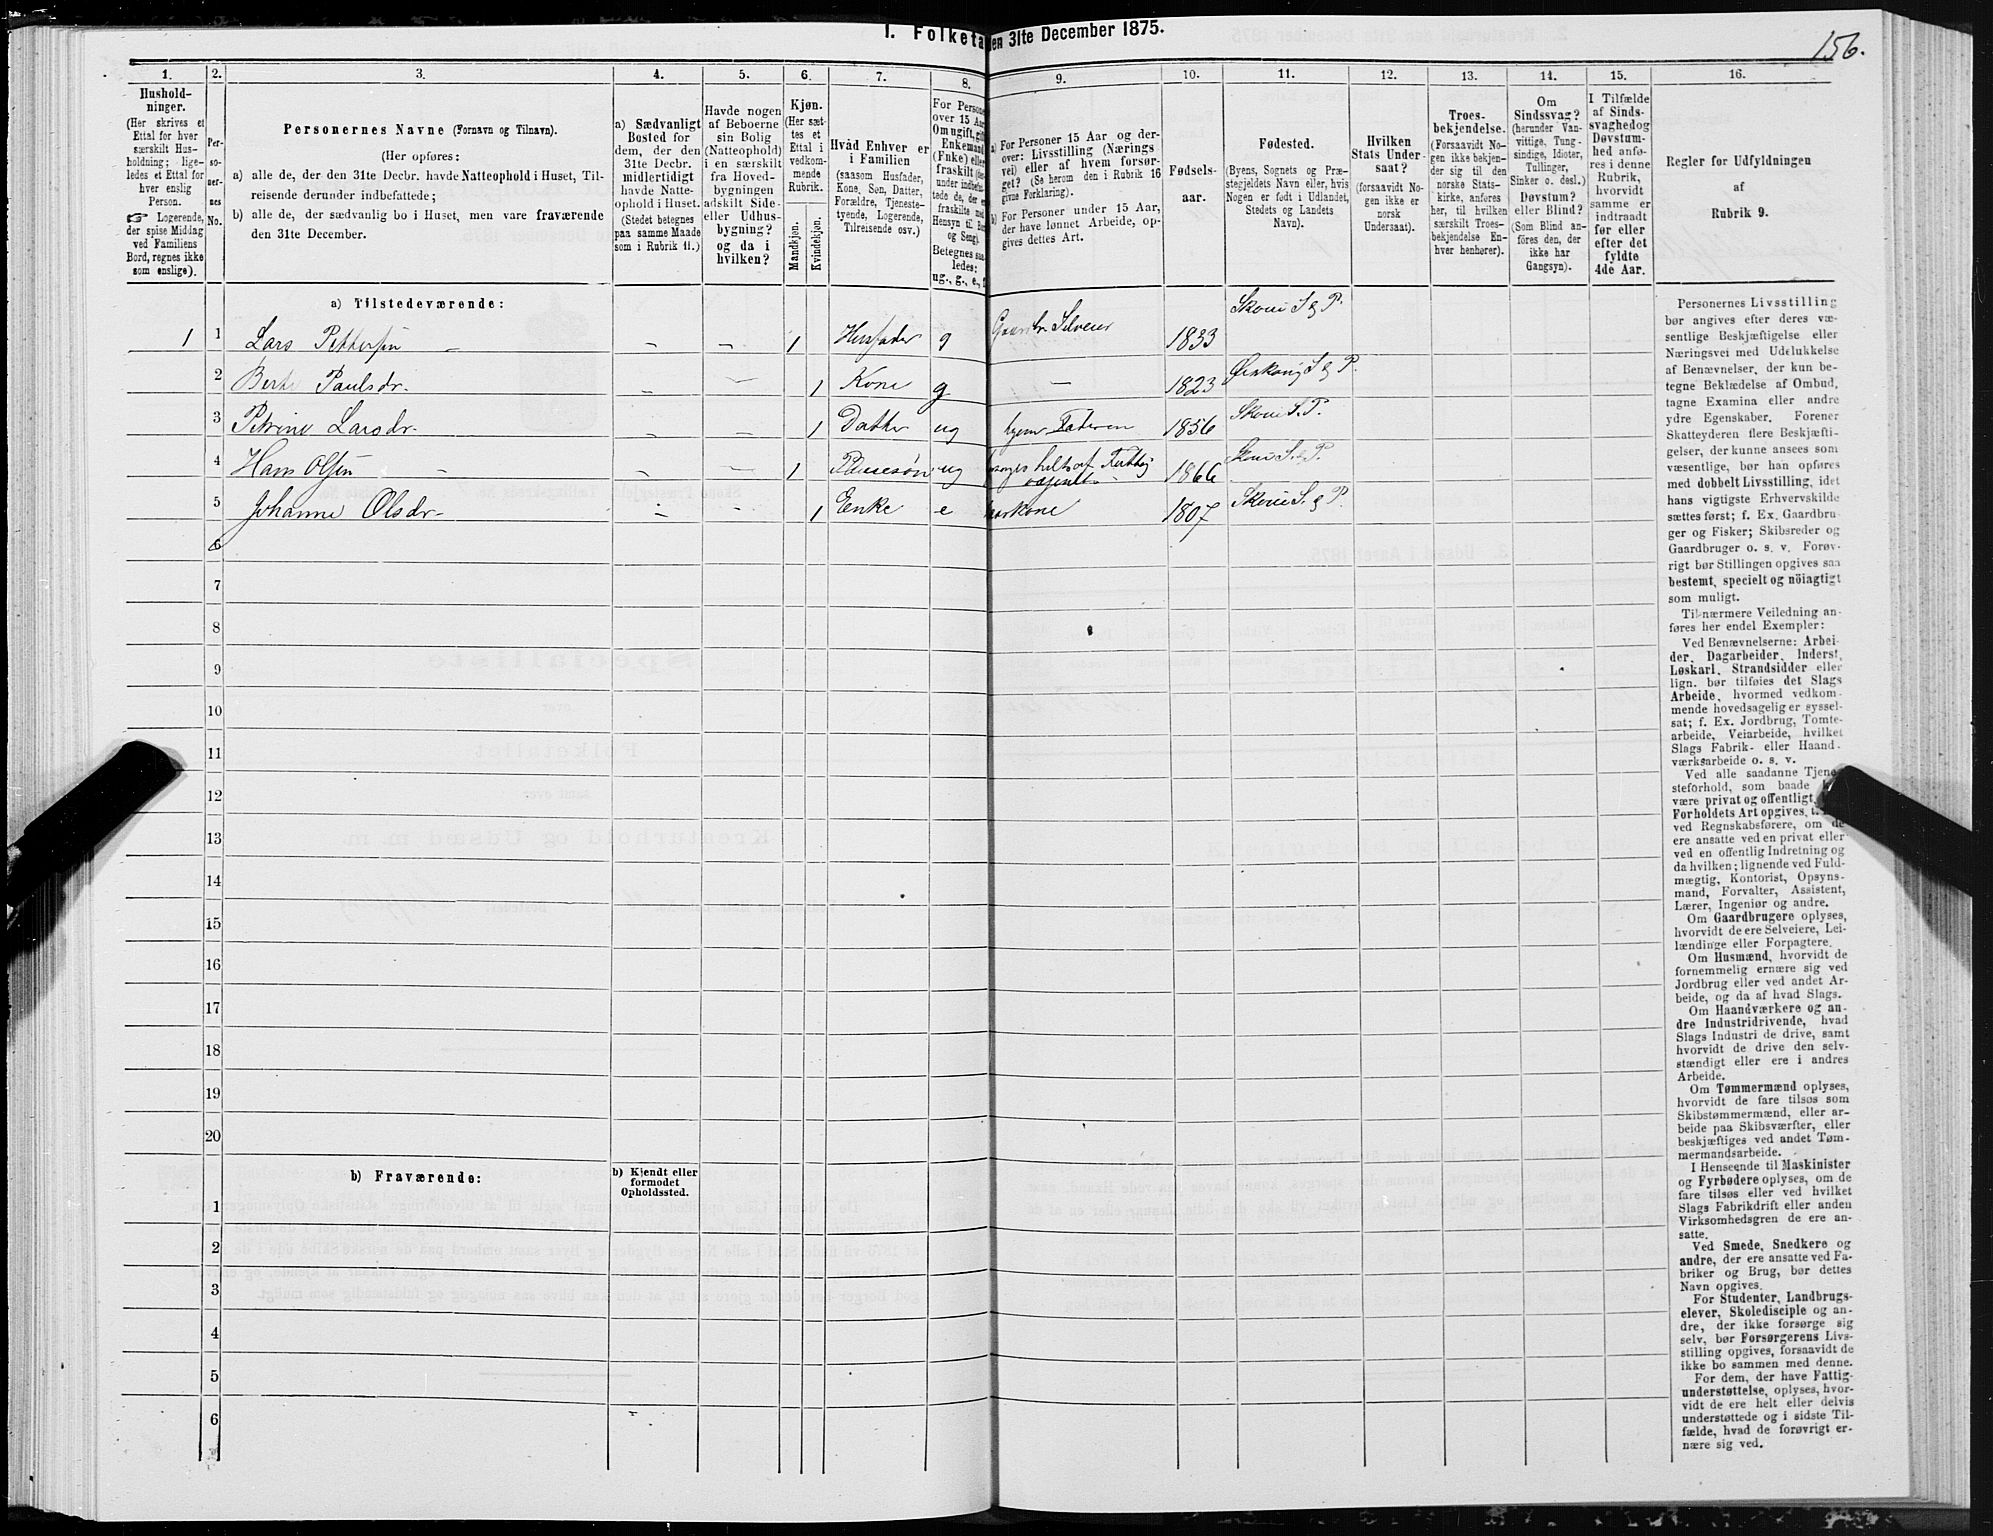 1. Folketa
den 31te December 1875.
156.
1. 2. 3. 4. 5. 6. 7. 8. 9. 10. 11. 12. 13. 14. 15. 16.
Hushold-
ninger.
(Her skrives et
Ettal for hver
særskilt Hus-
holdning; lige-
ledes et Ettal for
hver enslig
Person.
☞ Logerende,
der spise Middag
ved Familiens
Bord, regnes ikke
som enslige).
Per-
so-
ner-
nes
No.
Personernes Navne (Fornavn og Tilnavn).
(Her opføres:
a) alle de, der den 31te Decbr. havde Natteophold i Huset, Til-
reisende derunder indbefattede;
b) alle de, der sædvanlig bo i Huset, men vare fraværende
den 31te December.
a) Sædvanligt
Bosted for
dem, der den
31te Decbr.
midlertidigt
havde Natte-
ophold i Huset.
(Stedet betegnes
paa samme Maade
som i Rubrik 11.)
Havde nogen
af Beboerne
sin Bolig
(Natteophold)
i en særskilt
fra Hoved-
bygningen
adskilt Side-
eller Udhus-
bygning?
og da i
hvilken?
Kjøn.
(Her sæt-
tes et
Ettal i
vedkom-
mende
Rubrik.
Mandkjøn.
Kvindekjøn.
Hvad Enhver er
i Familien
(saasom Husfader,
Kone, Søn, Datter,
Forældre, Tjeneste-
tyende, Logerende,
Tilreisende osv.)
For Persone
over 15 Aar
Om ugift, gift
Enkemand
(Enke) eller
fraskilt
Hensyn til Bo
og Seng).
Betegnes saa
ledes:
ug., g., e.,
a) For Personer 15 Aar og der-
over: Livsstilling (Nærings
vei) eller af hvem forsør-
get? (Se herom den i Rubrik 16
givne Forklaring.)
b) For Personer under 15 Aar,
der have lønnet Arbeide, op-
gives dettes Art.
Fødsels-
aar.
Fødested.
(Byens, Sognets og Præ-
stegjeldets Navn eller, hvis
Nogen er født i Udlandet,
Stedets og Landets
Navn).
Hvilken
Stats Under-
saat?
(forsaavidt No-
gen ikke er
norsk
Undersaat).
Troes-
bekjendelse.
(Forsaavidt No-
gen ikke bekjen-
der sig til den
norske Stats-
kirke, anføres
her, til hvilken
særskilt Troes-
bekjendelse En-
hver henhører).
Om
Sindssvag?
(herunder Van-
vittige, Tung-
sindige, Idioter,
Tullinger,
Sinker o. desl.)
Døvstum?
eller Blind?
(Som Blind an-
føres den, der
ikke har
Gangsyn).
I Tilfælde
af Sinds-
svaghed og
Døvstum-
hed anfø-
res i denne
Rubrik,
hvorvidt
samme er
indtraadt
før eller
efter det
fyldte
4de Aar.
Regler for Udfyldningen
af
Rubrik 9.
a) Tilstedeværende:
1 1 Lars Pettersen – – – 1 Husfader g Gaardbr. Selveier 1833 Skoui S & P.
2 Berte Paulsdr. – – 1 Kone g – 1823 S & P.
3 Petrine Larsdr. – – 1 Datter ug Faderen 1856 Skoui S. P.
4 Hans Olsen – – – 1 ug 1866 Skoui S. & P.
5 Johanne Olsdr – – 1 Enke e 1807 Skoui S. & P.
6
7
8
9
10
11
12
13
14
15
16
17
18
19
20
b) Fraværende:
b) Kjendt eller
formodet
Opholdssted.
1
2
3
4
5
6
Personernes Livsstilling
bør angives efter deres væ-
sentlige Beskjæftigelse eller
Næringsvei med Udelukkelse
af Benævnelser, der kun be-
tegne Beklædelse af Ombud,
tagne Examina eller andre
ydre Egenskaber. Forener
Skatteyderen flere Beskjæfti-
gelser, der kunne ansees som
væsentlige, bør han opføres
med dobbelt Livsstilling, idet
hans vigtigste Erhvervskilde
sættes først; f. Ex. Gaardbru-
ger og Fisker; Skibsreder og
Gaardbruger o. s. v. Forøv-
rigt bør Stillingen opgives saa
bestemt, specielt og nöiagtigt
som muligt.
Til nærmere Veiledning an-
føres her endel Exempler:
Ved Benævnelserne: Arbei-
der, Dagarbeider, Inderst,
Løskarl, Strandsidder eller
lign. bør tilføies det Slags
Arbeide, hvormed vedkom-
mende hovedsagelig er syssel-
sat; f. Ex. Jordbrug, Tomte-
arbeide, Veiarbeide, hvilket
Slags Fabrik- eller Haand-
værksarbeide o. s. v.
Ved alle saadanne Tjene-
steforhold, som baade
være privat og offentligt,
Forholdets Art opgives,
ved Regnskabsførere, om de
ere ansatte ved en privat eller
ved en offentlig Indretning og
da hvilken; lignende ved Fuld-
mægtig, Kontorist, Opsyns-
mand, Forvalter, Assistent,
Lærer, Ingeniør og andre.
Om Gaardbrugere oplyses,
hvorvidt de ere Selveiere, Lei-
lændinge eller Forpagtere.
Om Husmænd, hvorvidt de
fornemmelig ernære sig ved
Jordbrug eller ved andet Ar-
beide, og da af hvad Slags.
Om Haandværkere og an-
dre Industridrivende, hvad
Slags Industri de drive, samt
hvorvidt de drive den selv-
stændigt eller ere i andres
Arbeide.
Om Tømmermænd oplyses,
hvorvidt de fare tilsøs som
Skibstømmermænd, eller ar-
beide paa Skibsværfter, eller
beskjæftiges ved andet Tøm-
mermandsarbeide.
I Henseende til Maskinister
og Fyrbødere oplyses, om de
fare tilsøs eller ved hvilket
Slags Fabrikdrift eller anden
Virksomhedsgren de ere an-
satte.
Ved Smede, Snedkere og
andre, der ere ansatte ved Fa-
briker og Brug, bør dettes
Navn opgives.
For Studenter, Landbrugs-
elever, Skoledisciple og an-
dre, der ikke forsørge sig
selv, bør Forsørgerens Livs-
stilling opgives, forsaavidt de
ikke bo sammen med denne.
For dem, der have Fattig-
understøttelse, oplyses, hvor-
vidt de ere helt eller delvis
understøttede og i sidste Til-
fælde, hvad de forøvrigt er-
nære sig ved.